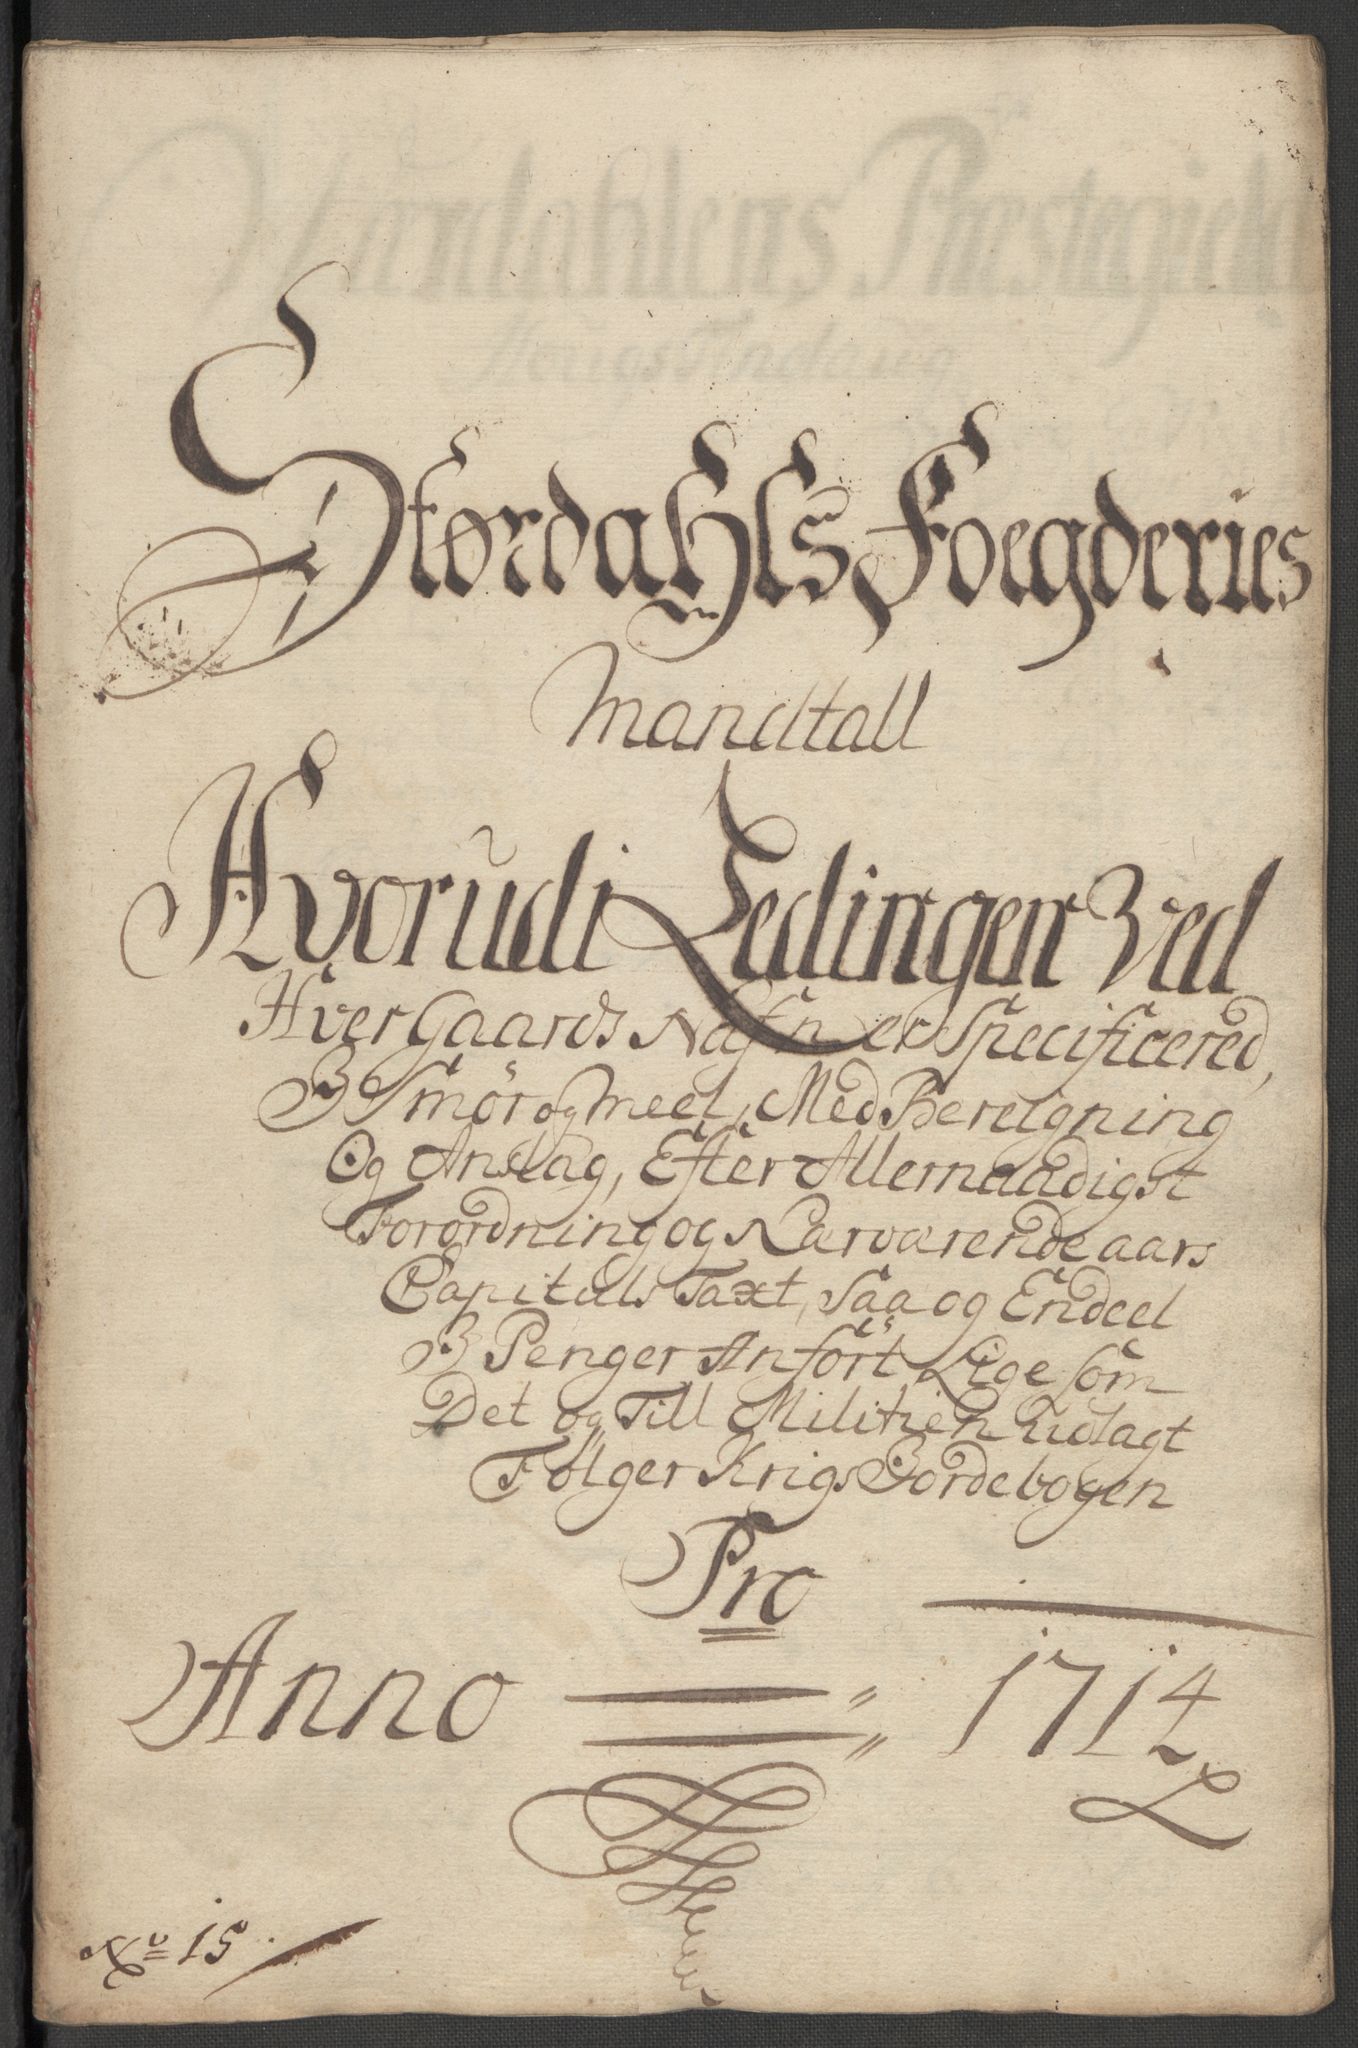 Størdahls Foegderies
Mandtall
Hvorudi Ledingen Ved
Hver Gaards Nafn er Specificered,
I Smör og Meel, Med Bereigning
Og Anslag, Efter Allernaadigst
Forordning og Nærværende aars
Capituls Taxt, Saa og Endeel
I Penger Anfört Lige som
Det og Till Militien udlagt
Følger Krigs Jordebogen
Pro
Anno 1714
No 15.